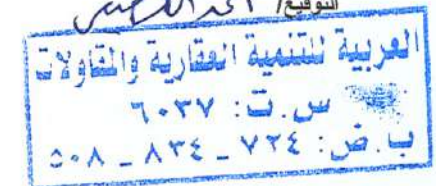 التوقيع/ أحمد
العربية للتنمية العقارية والمقاولات
س.ت: ٦٠٣٧
ب.ض: ٧٢٤ - ٨٣٤ - ٥٠٨